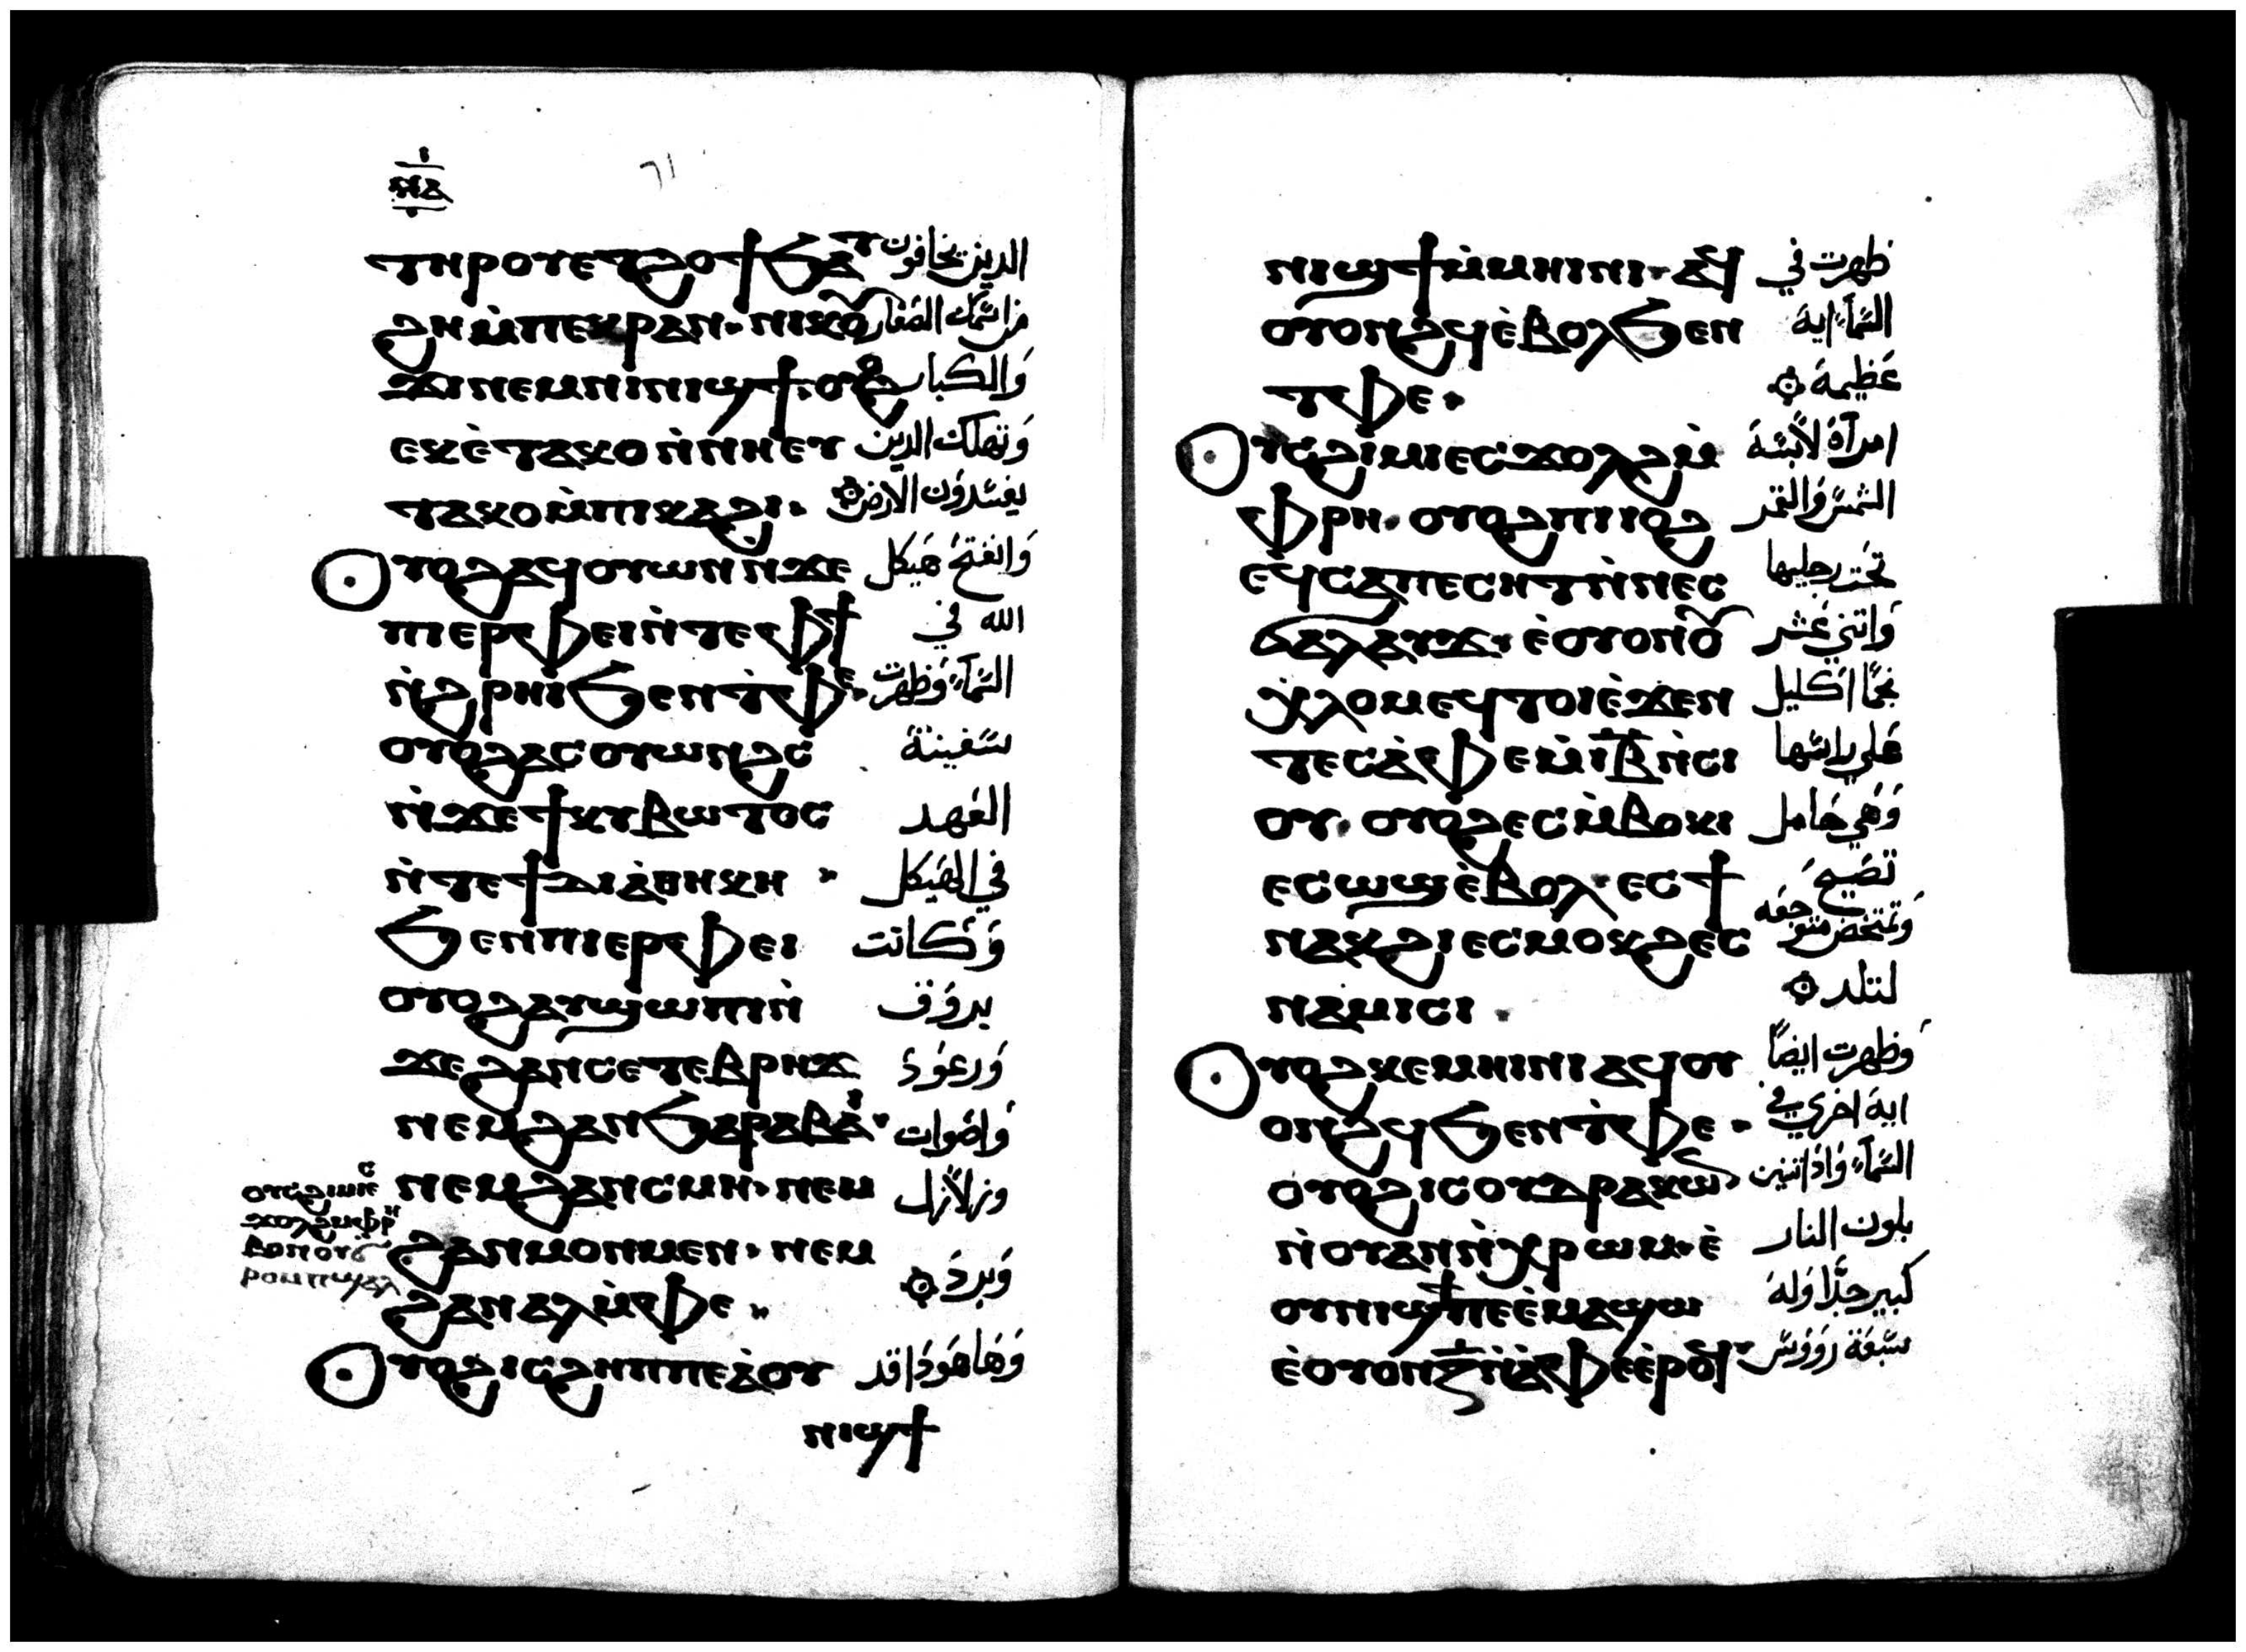 ⲛⲁ
٦١
ⲧⲏⲣⲟⲩ ⲉⲧⲉⲣϩⲟϯ ϧⲁⲧ الدين يخافون
ϩⲏ ⲙ̀ⲡⲉⲕⲣⲁⲛ · ⲛⲓⲕⲟⲩ من اسمك الصغار
ϫⲓ ⲛⲉⲙ ⲛⲓⲛⲓϣϯ · ⲟⲩⲟϩ والكبار
ⲉⲕⲉ̀ⲧⲁⲕⲟ ⲛ̀ⲛⲏⲉⲧ وتهلك الدين
ⲧⲁⲕⲟ ⲙ̀ⲡⲓⲕⲁϩⲓ · يفسدون الارض
ⲟⲩⲟϩ ⲁϥⲟⲩⲱⲛ ⲛ̀ϫⲉ وانفتح هيكل
ⲡⲓⲉⲣⲫⲉⲓ ⲛ̀ⲧⲉ ⲫϯ الله في
ⲛ̀ϩⲣⲏⲓ ϧⲉⲛ ⲧ̀ⲫⲉ · السمآء وظهرت
ⲟⲩⲟϩ ⲁⲥⲟⲩⲱⲛϩⲥ سفينة
ⲛ̀ϫⲉ ϯⲕⲩⲃⲱⲧⲟⲥ العهد
ⲛ̀ⲧⲉ ϯⲇⲓⲁ̀ⲑⲏⲕⲏ · في الهيكل
ϧⲉⲛ ⲡⲓⲉⲣⲫⲉⲓ وكانت
ⲟⲩⲟϩ ⲁⲩϣⲱⲡⲓ ⲛ̀ بروق
ϫⲉ ϩⲁⲛⲥⲉⲧⲉⲃⲣⲏϫ ورعود
ⲛⲉⲙ ϩⲁⲛϧⲁⲣⲁⲃⲁⲓ · واصوات
ⲛⲉⲙ ϩⲁⲛⲥⲙⲏ · ⲛⲉⲙ وزلازل
ϩⲁⲛⲙⲟⲛⲙⲉⲛ · ⲛⲉⲙ
ϩⲁⲛⲁⲗⲙ̀ⲫⲉ · وبرد
ⲟⲩⲟϩ ⲓⲥ ϩⲏⲡⲡⲉ ⲁ̀ⲟⲩ وها هودا قد
ⲛⲓϣϯ
ⲟⲩⲥϩⲓⲙⲓ ⲉⲥ
ϫⲟⲗϩ ⲙⲫⲣⲏ
ⲛⲓϣϯ ⲙ̀ⲙⲏⲓⲛⲓ · ⲁϥ ظهرت في
ⲟⲩⲟⲛϩϥ ⲉ̀ⲃⲟⲗ ϧⲉⲛ السمآء اية
ⲧⲫⲉ · عظيمة
ⲟⲩⲥϩⲓⲙⲓ ⲉⲥϫⲟⲗϩ ⲙ̀ امرآة لابسة
ⲫⲣⲏ · ⲟⲩⲟϩ ⲡⲓⲓⲟϩ الشمس والقمر
ⲉϥⲥⲁⲡⲉⲥⲏⲧ ⲛ̀ⲛⲉⲥ تحت رجليها
ϭⲁⲗⲁⲩϫ · ⲉ̀ⲟⲩⲟⲛ ⲟⲩ واتني عشر
ⲭ̀ⲗⲟⲙ ⲉϥⲧⲟⲓ ⲉ̀ϫⲉⲛ نجما اكليل
ⲧⲉⲥⲁ̀ⲫⲉ ⲙ̀ⲓⲃ ⲛ̀ⲥⲓ علي راسها
ⲟⲩ · ⲟⲩⲟϩ ⲉⲥⲙ̀ⲃⲟⲕⲓ وهي حامل
ⲉⲥⲱϣ ⲉ̀ⲃⲟⲗ · ⲉⲥϯ تصيح
ⲛⲁⲕϩⲓ ⲉⲥⲙⲟⲕϩ ⲉⲥ وتمتخض متوجعه
ⲛⲁⲙⲓⲥⲓ · لتلد
ⲟⲩⲟϩ ⲕⲉⲙⲏⲓⲛⲓ ⲁϥⲟⲩ وظهرت ايضاً
ⲟⲛϩϥ ϧⲉⲛ ⲧ̀ⲫⲉ · اية اخري في
ⲟⲩⲟϩ ⲓⲥ ⲟⲩⲇⲣⲁⲕⲱⲛ السمآء واذا تنين
ⲛ̀ⲟⲩⲁⲛ ⲛ̀ⲭⲣⲱⲙ · ⲉ̀ بلون النار
ⲟⲩⲛⲓϣϯ ⲡⲉ ⲉ̀ⲙⲁϣⲱ كبير جدا وله
ⲉ̀ⲟⲩⲟⲛ ⲍ ⲛ̀ⲁ̀ⲫⲉ ⲉ̀ⲣⲟϥ سبعة رووس